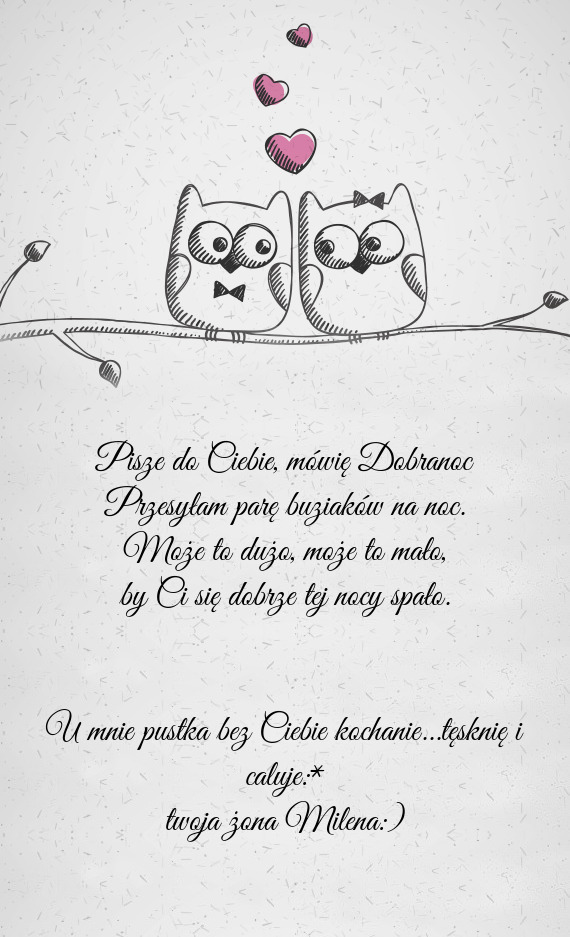 Pisze do Ciebie, mówię Dobranoc
Przesyłam parę buziaków na noc.
Może to dużo, może to mało,
by Ci się dobrze tej nocy spało.
U mnie pustka bez Ciebie kochanie...tęsknię i
caluje:*
twoja żona Milena:)